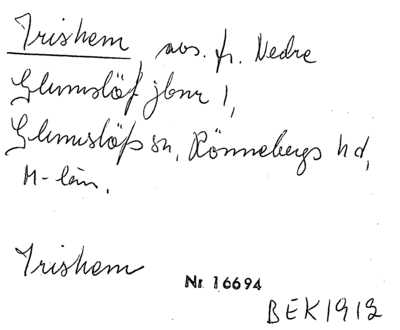 Irishem avs. fr. Nedre
Glumslöf jbnr 1,
Glumslöfs sn, Rönnebergs hd,
M-län.
Irishem
Nr 16694
BEK1912